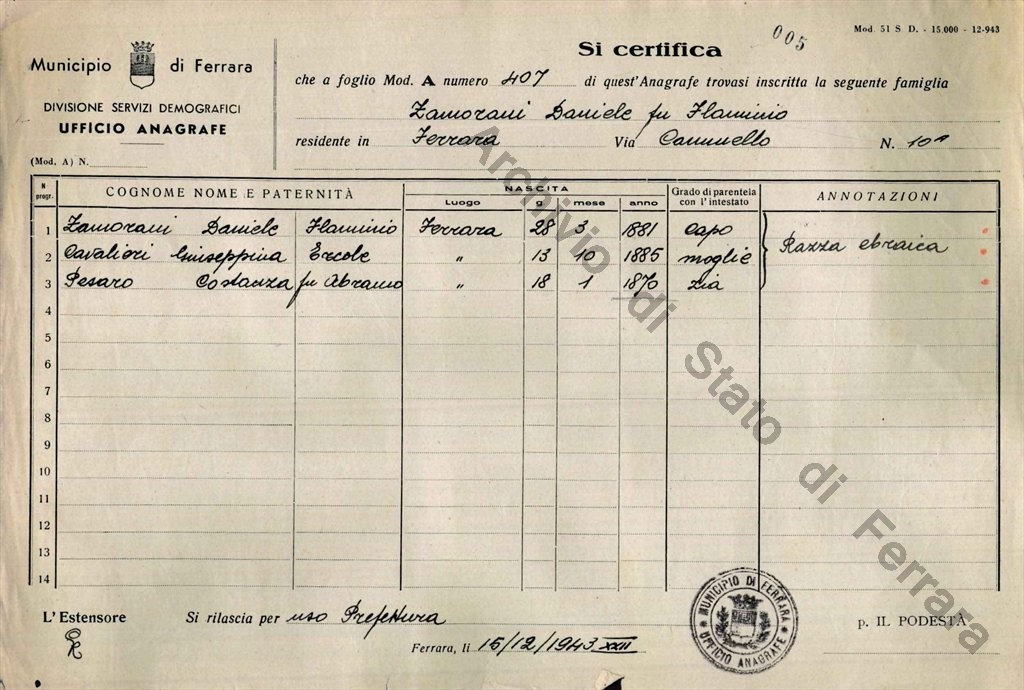 005
Mod. 51 S D. - 15.000 - 12-943
Municipio di Ferrara
DIVISIONE SERVIZI DEMOGRAFICI
UFFICIO ANAGRAFE
(Mod. A) N.
Si certifica
che a foglio Mod. A numero 407 di quest'Anagrafe trovasi inscritta la seguente famiglia
Zamorani Daniele fu Flaminio
residente in Ferrara Via N. 10
N progr. COGNOME NOME E PATERNITÀ NASCITA Grado di parentela con l'intestato ANNOTAZIONI
Luogo g mese anno
1 Zamorani Daniele Flaminio Ferrara 28 3 1881 capo
2 Cavalieri Giuseppina Ercole " 13 10 1885 moglie
Razza ebraica
3 Pesaro Costanza fu Abramo " 18 1 1870 zia
4
5
6
7
8
9
10
11
12
13
14
L'Estensore
Si rilascia per uso Prefettura
Ferrara, lì 15/12/1943 XXII
MUNICIPIO DI FERRARA
UFFICIO ANAGRAFE
p. IL PODESTÀ
Archivio di Stato di Ferrara